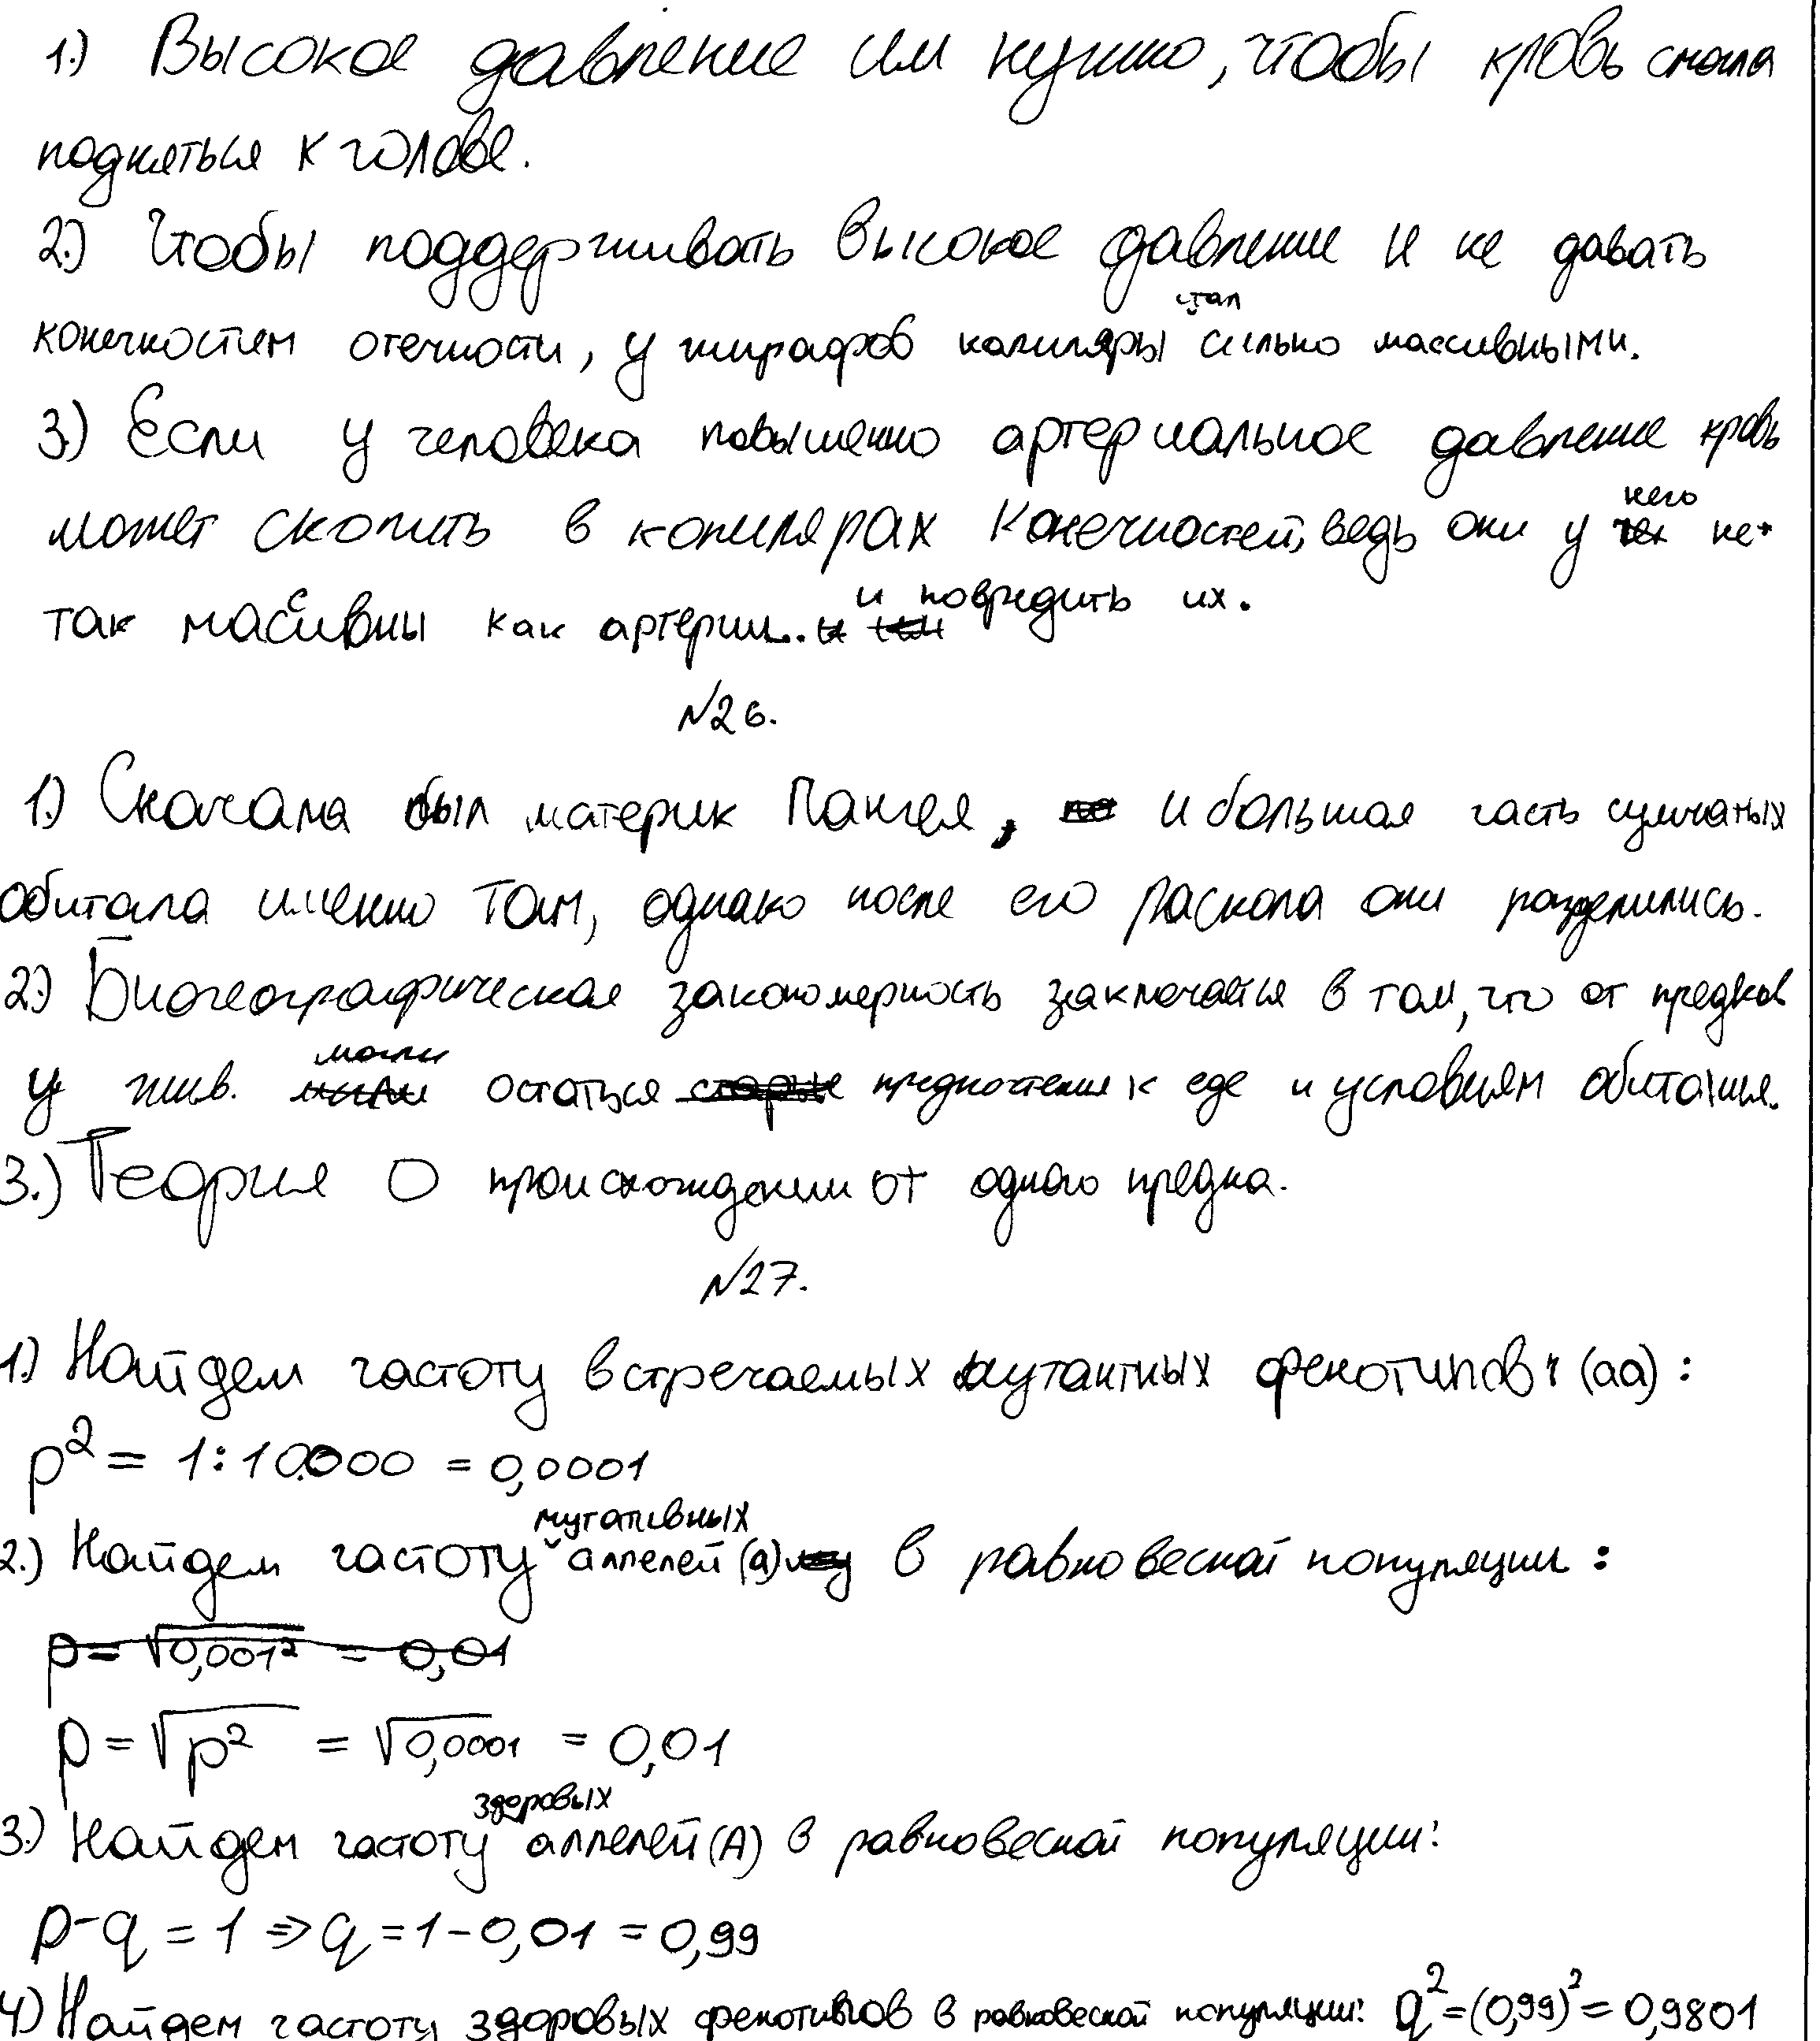 1.) Высокое давление им нужно, чтобы кровь смогла
подняться к голове.
2.) Чтобы поддерживать высокое давление и не давать
конечностям отечности, у жирафов капиляры стал сильно массивными.
3.) Если у человека повышенно артериальное давление кровь
может скопить в копилярах конечностей, ведь они у него не
так массивны как артерии. и повредить их.
№26.
1.) Сначала был материк Пангея, и большая часть сумчатых
обитала именно там, однако после его раскола они разделились.
2.) Биогеографическая закономерность заключается в том, что от предков
у жив. могли остаться предпочтения к еде и условиям обитания.
3.) Теория о происхождении от одного предка.
№27.
1.) Найдем частоту встречаемых мутантных фенотипов (аа):
p² = 1:10000 = 0,0001
2.) Найдем частоту мутативных аллелей (а) в равновесной популяции:
p = √0,001² = 0,01
p = √p² = √0,0001 = 0,01
3.) Найдем частоту здоровых аллелей (А) в равновесной популяции:
p-q = 1 => q = 1-0,01 = 0,99
4) Найдем частоту здоровых фенотипов в равновесной популяции: q² = (0,99)² = 0,9801